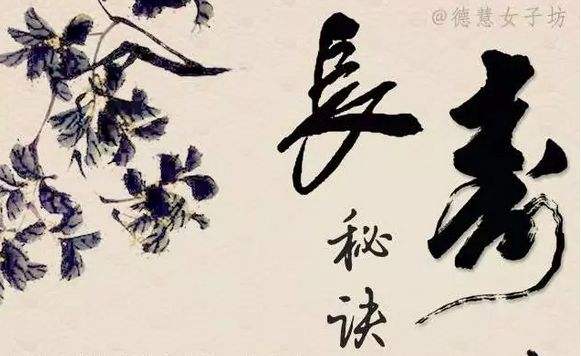 @德慧女子坊
長寿
秘诀